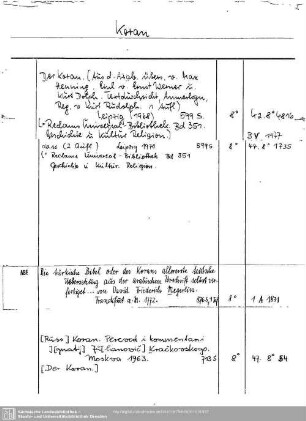 Koran
Der Koran. (Aus d. Arab. übers. v. Max
Henning. Einl. v. Ernst Werner u.
Kurt Rudolph. Textdurchsicht, Anmerkgn,
Reg. v. Kurt Rudolph. 1. Aufl)
Leipzig (1968) 599 S. 8° 42. 8° 4816
(= Reclams Universal-Bibliothek Bd 351.
Geschichte u Kultur Religion)
dass (2. Aufl) Leipzig 1970 599 S 8° 44. 8° 1735
(= Reclams Universal-Bibliothek Bd 351
Geschichte u Kultur. Religion.
Die türkische Bibel oder des Korans allererste teutsche
Uebersetzung aus der arabischen Urschrift selbst ver-
fertiget ... von David Friederich Megerlin.
Frankfurt a.M. 1772. 8° 1 A 1871
[Russ] Koran. Perevod i kommentarii
I[gnatij] Ju[lianovič] Kračkovskogo.
Moskva 1963. 713 S 8° 47. 8° 84
[Der Koran.]